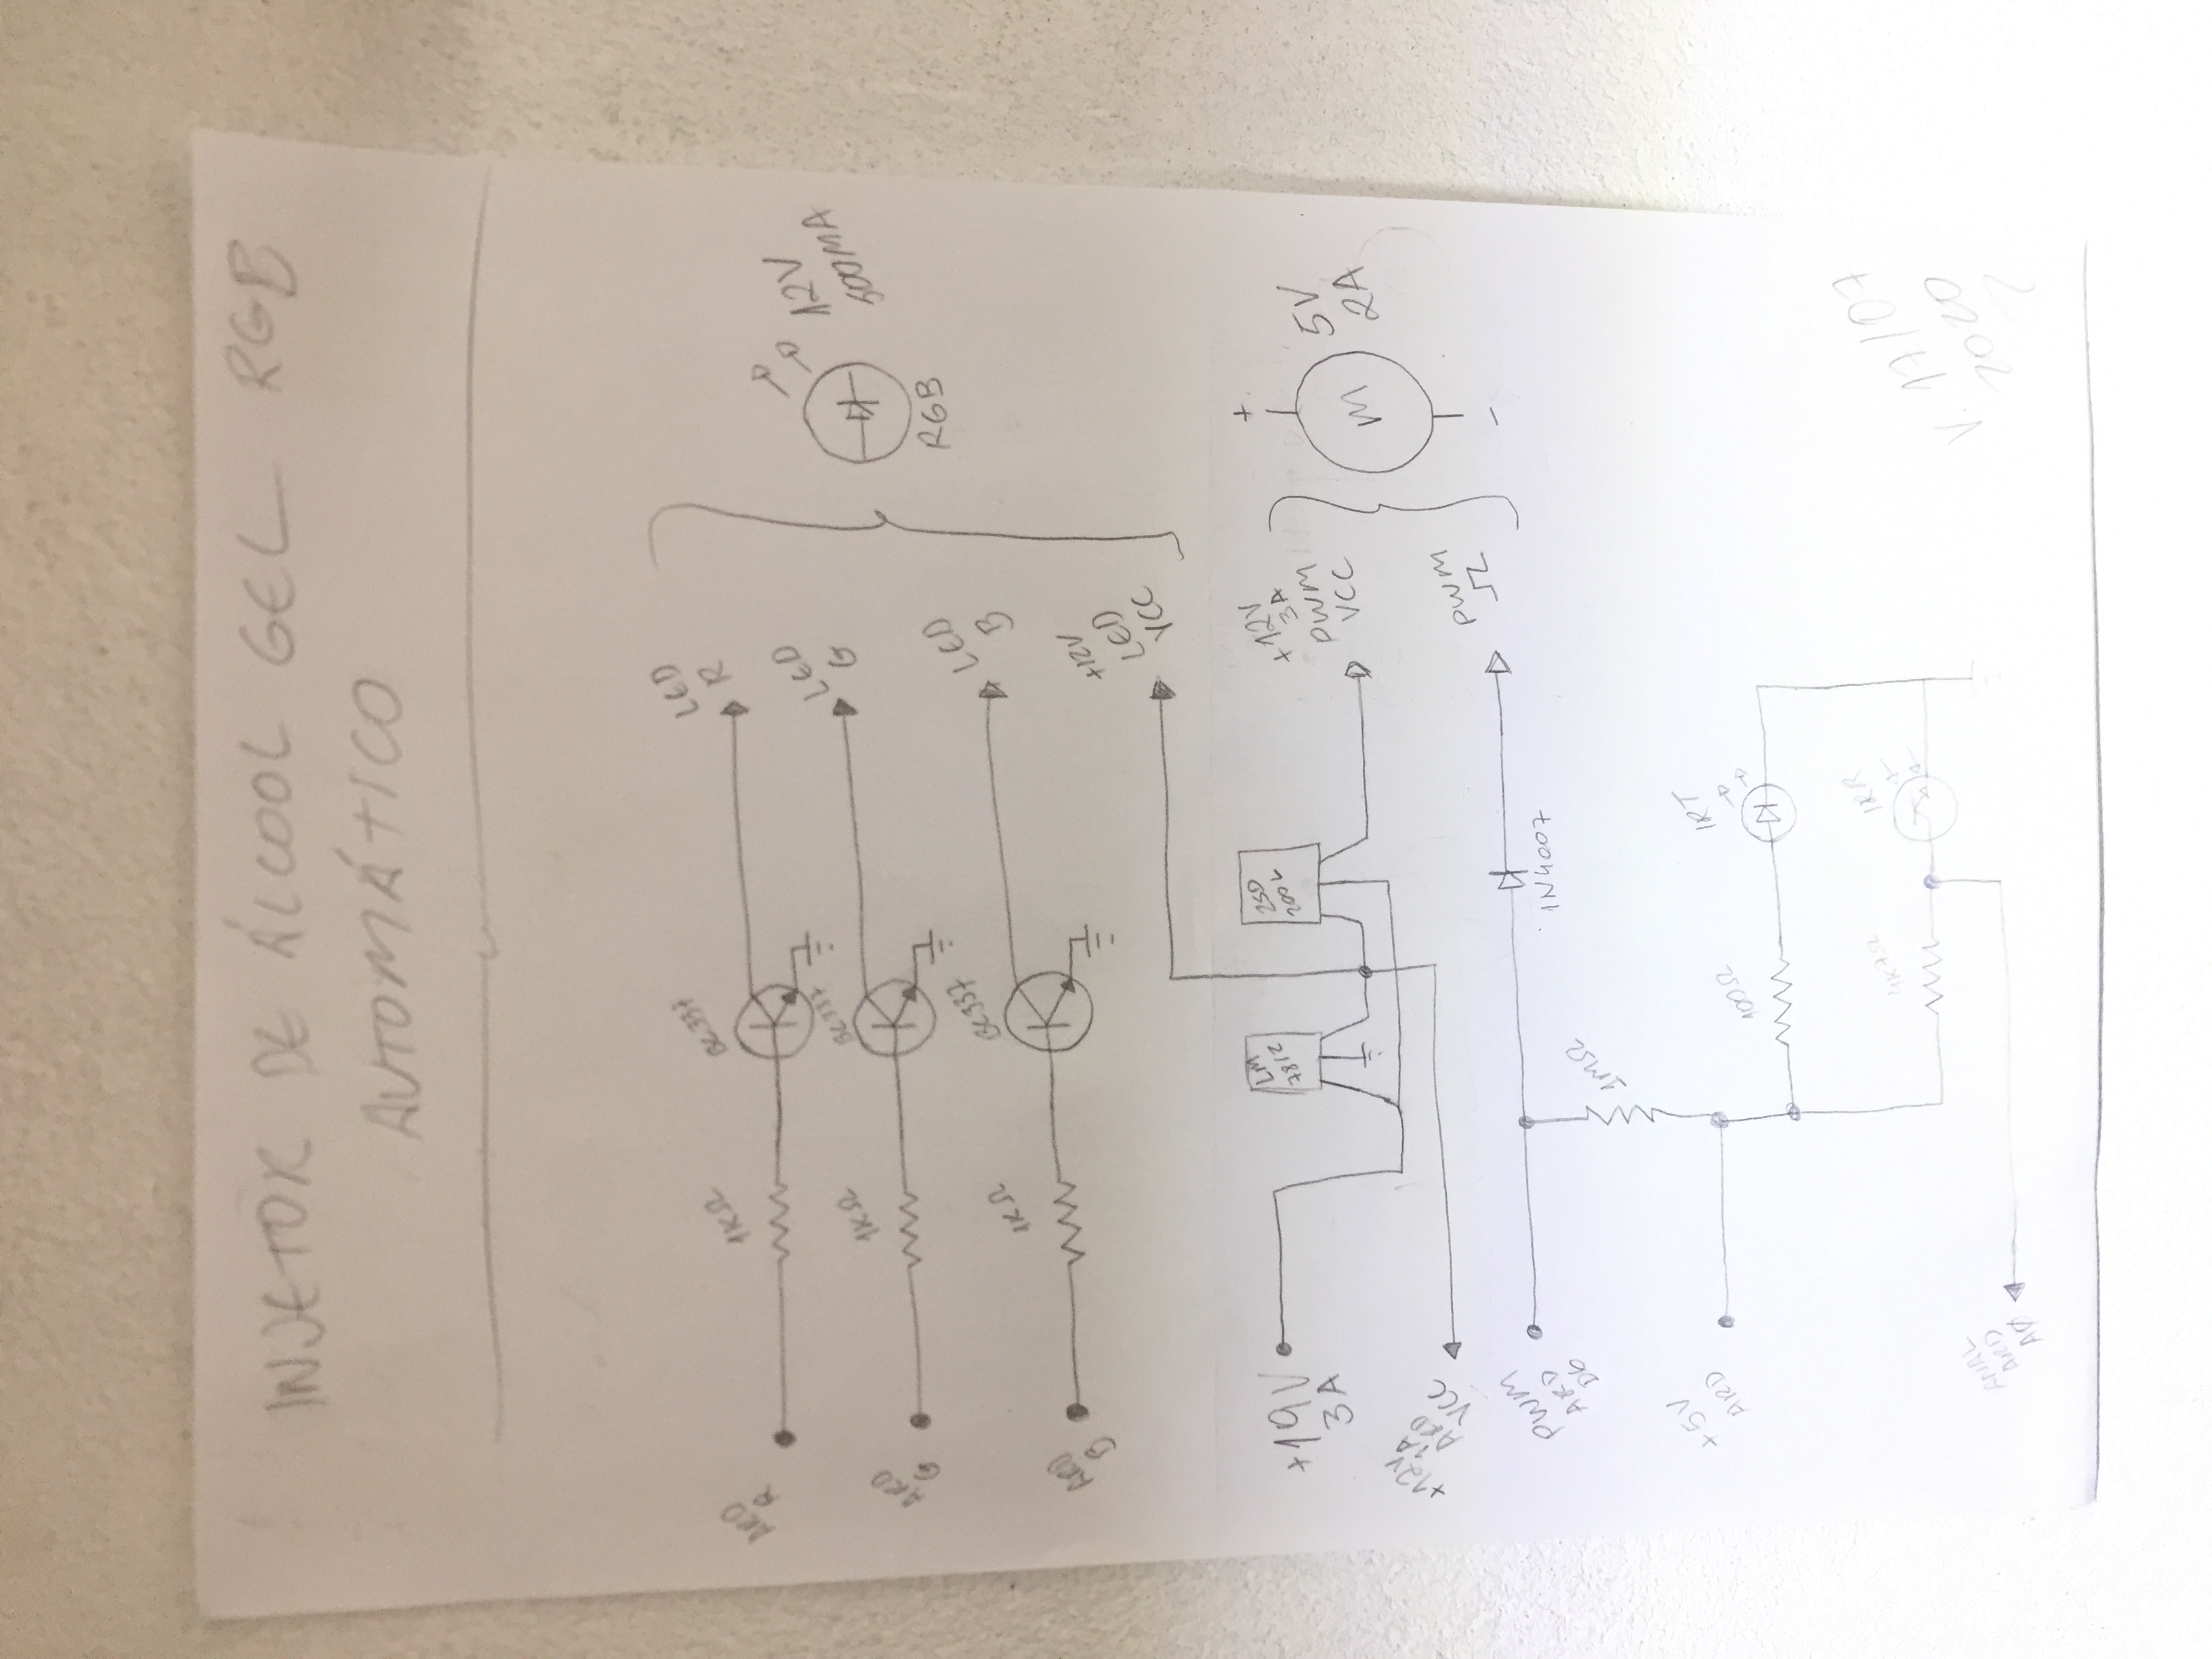 INJETOR DE ÁLCOOL GEL RGB
AUTOMÁTICO
ARD
R
1KΩ
BC337
LED
R
ARD
G
1KΩ
BC337
LED
G
ARD
B
1KΩ
BC337
LED
B
+12V
LED
VCC
RGB
12V
500MA
+19V
3A
LM
7812
2SD
200L
+12V
3A
PWM
VCC
+
M
-
5V
2A
+12V
1A
ARD
VCC
PWM
ARD
D6
1N4007
PWM
1MΩ
+5V
ARD
100Ω
IRT
4K7Ω
IRR
ANAL
ARD
AØ
V. 17/07
2020